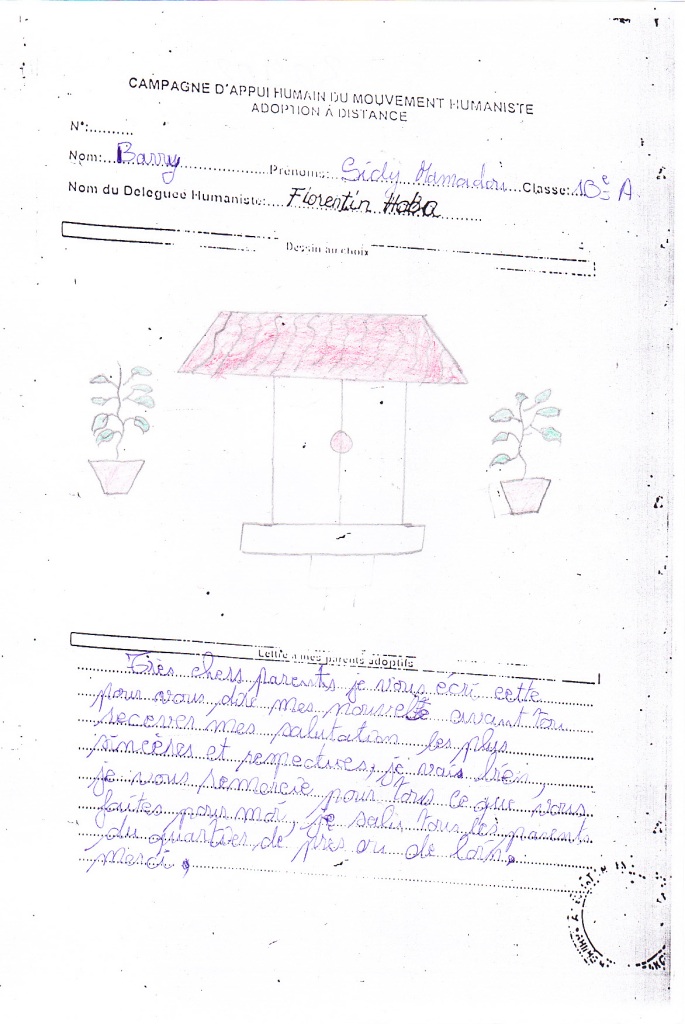 CAMPAGNE D'APPUI HUMAIN DU MOUVEMENT HUMANISTE
ADOPTION À DISTANCE
N°:..........
Nom: Barry Prénoms: Sidy Mamadou Classe: 10e A
Nom du Deleguée Humaniste: Florentin Haba
Dessin au choix
Lettre à mes parents adoptifs
Très chers parents je vous écri cette
pour vous dire mes nouvelle avant tou
recever mes salutation les plus
sincères et respectives, je vais bien,
je vous remercie pour tous ce que vous
faites pour moi, je salu tous les parents
du quartier de près ou de loin,
merci.